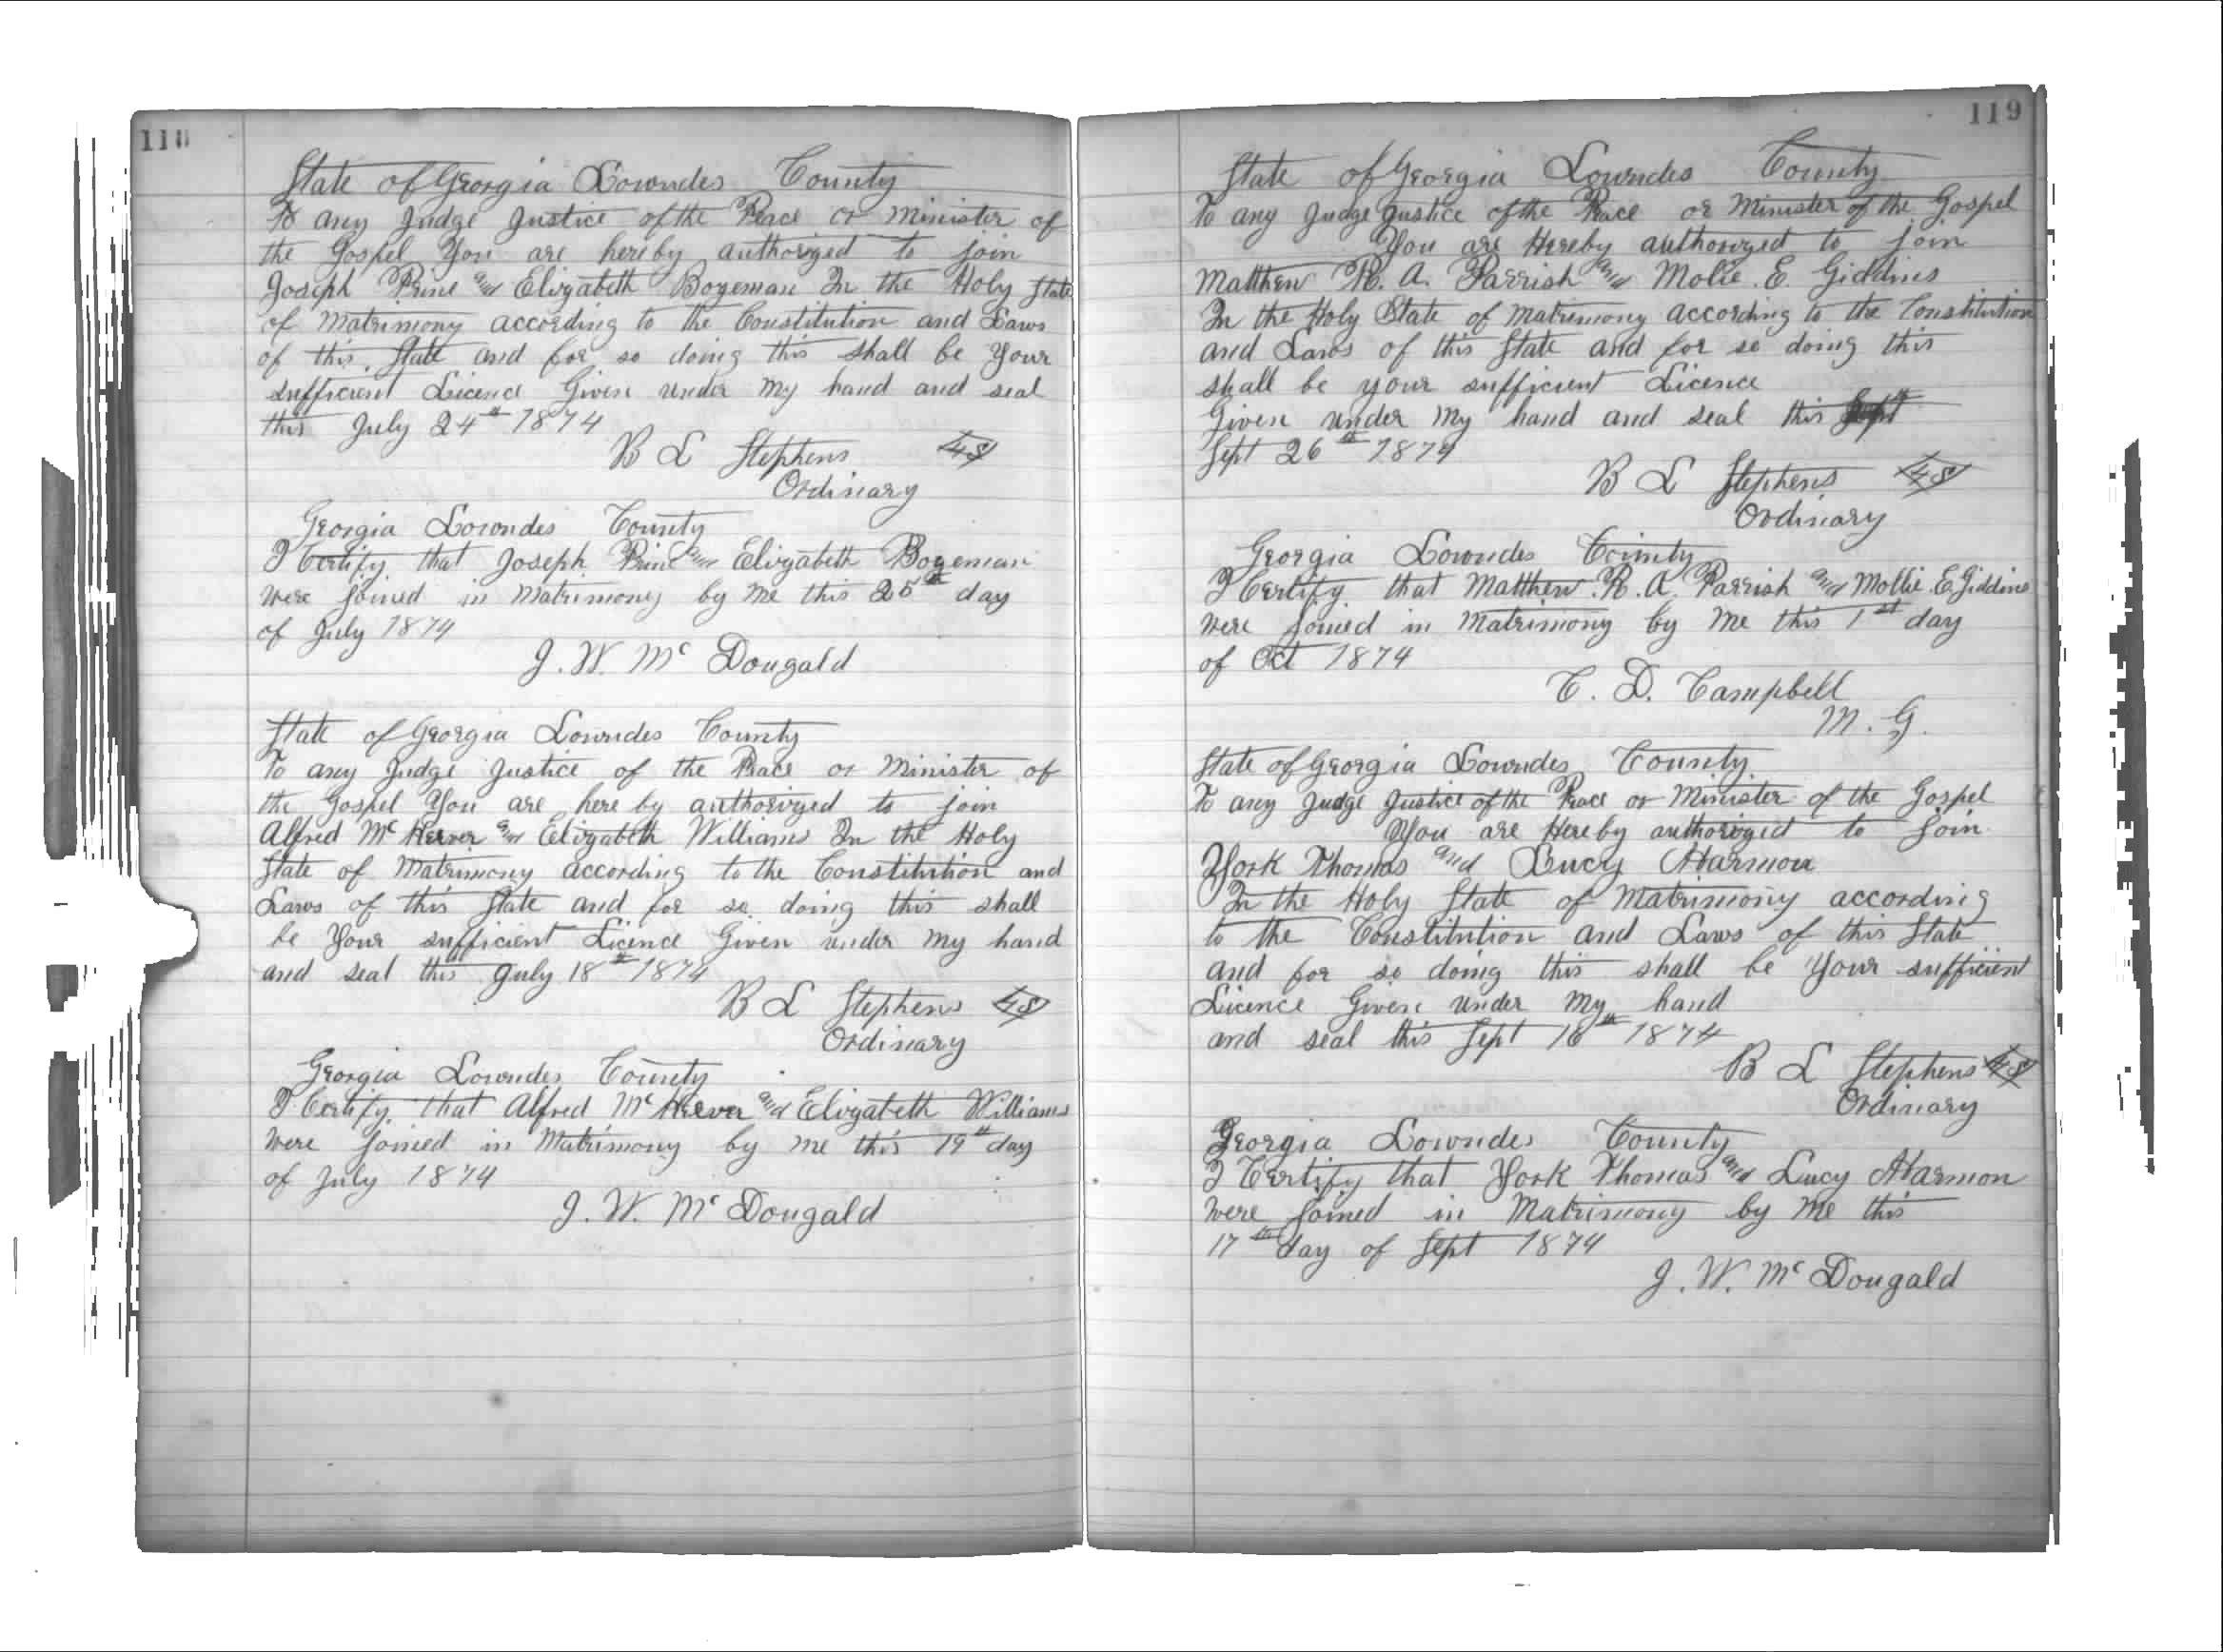 118
State of Georgia Lowndes County
To any Judge Justice of the Peace or Minister of
the Gospel You are hereby authorized to join
Joseph Prine and Elizabeth Bozeman In the Holy State
of Matrimony according to the Constitution and Laws
of this State and for so doing this shall be Your
sufficient Licence Given under my hand and seal
this July 24th 1874
B L Stephens LS
Ordinary
Georgia Lowndes County
I Certify that Joseph Prine and Elizabeth Bozeman
were joined in Matrimony by me this 25th day
of July 1874
J. W. Mc Dougald
State of Georgia Lowndes County
To any Judge Justice of the Peace or Minister of
the Gospel You are here by authorized to join
Alfred Mc and Elizabeth Williams In the Holy
State of Matrimony according to the Constitution and
Laws of this State and for so doing this shall
be Your sufficient Licence Given under my hand
and seal this July 18th 1874
B L Stephens LS
Ordinary
Georgia Lowndes County
I Certify that Alfred Mc and Elizabeth Williams
were joined in Matrimony by me this 19th day
of July 1874
J. W. Mc Dougald
119
State of Georgia Lowndes County
To any Judge Justice of the Peace or Minister of the Gospel
You are Hereby authorized to join
Matthew R. A. Parrish and Molie. E. Giddins
In the Holy State of Matrimony according to the Constitution
and Laws of this State and for so doing this
shall be your sufficient Licence
Given under my hand and seal this
Sept 26th 1874
B L Stephens LS
Ordinary
Georgia Lowndes County
I Certify that Matthew. R. A. Parrish and Mollie. E. Giddins
were joined in Matrimony by me this 1st day
of Oct 1874
C. D. Campbell
M. G.
State of Georgia Lowndes County
To any Judge Justice of the Peace or Minister of the Gospel
You are Hereby authorized to join
York Thomas and Lucy Harmon
In the Holy State of Matrimony according
to the Constitution and Laws of this State
and for so doing this shall be Your sufficient
Licence Given under my hand
and seal this Sept 16th 1874
B L Stephens LS
Ordinary
Georgia Lowndes County
I Certify that York Thomas and Lucy Harmon
were joined in Matrimony by me this
17th day of Sept 1874
J. W. Mc Dougald